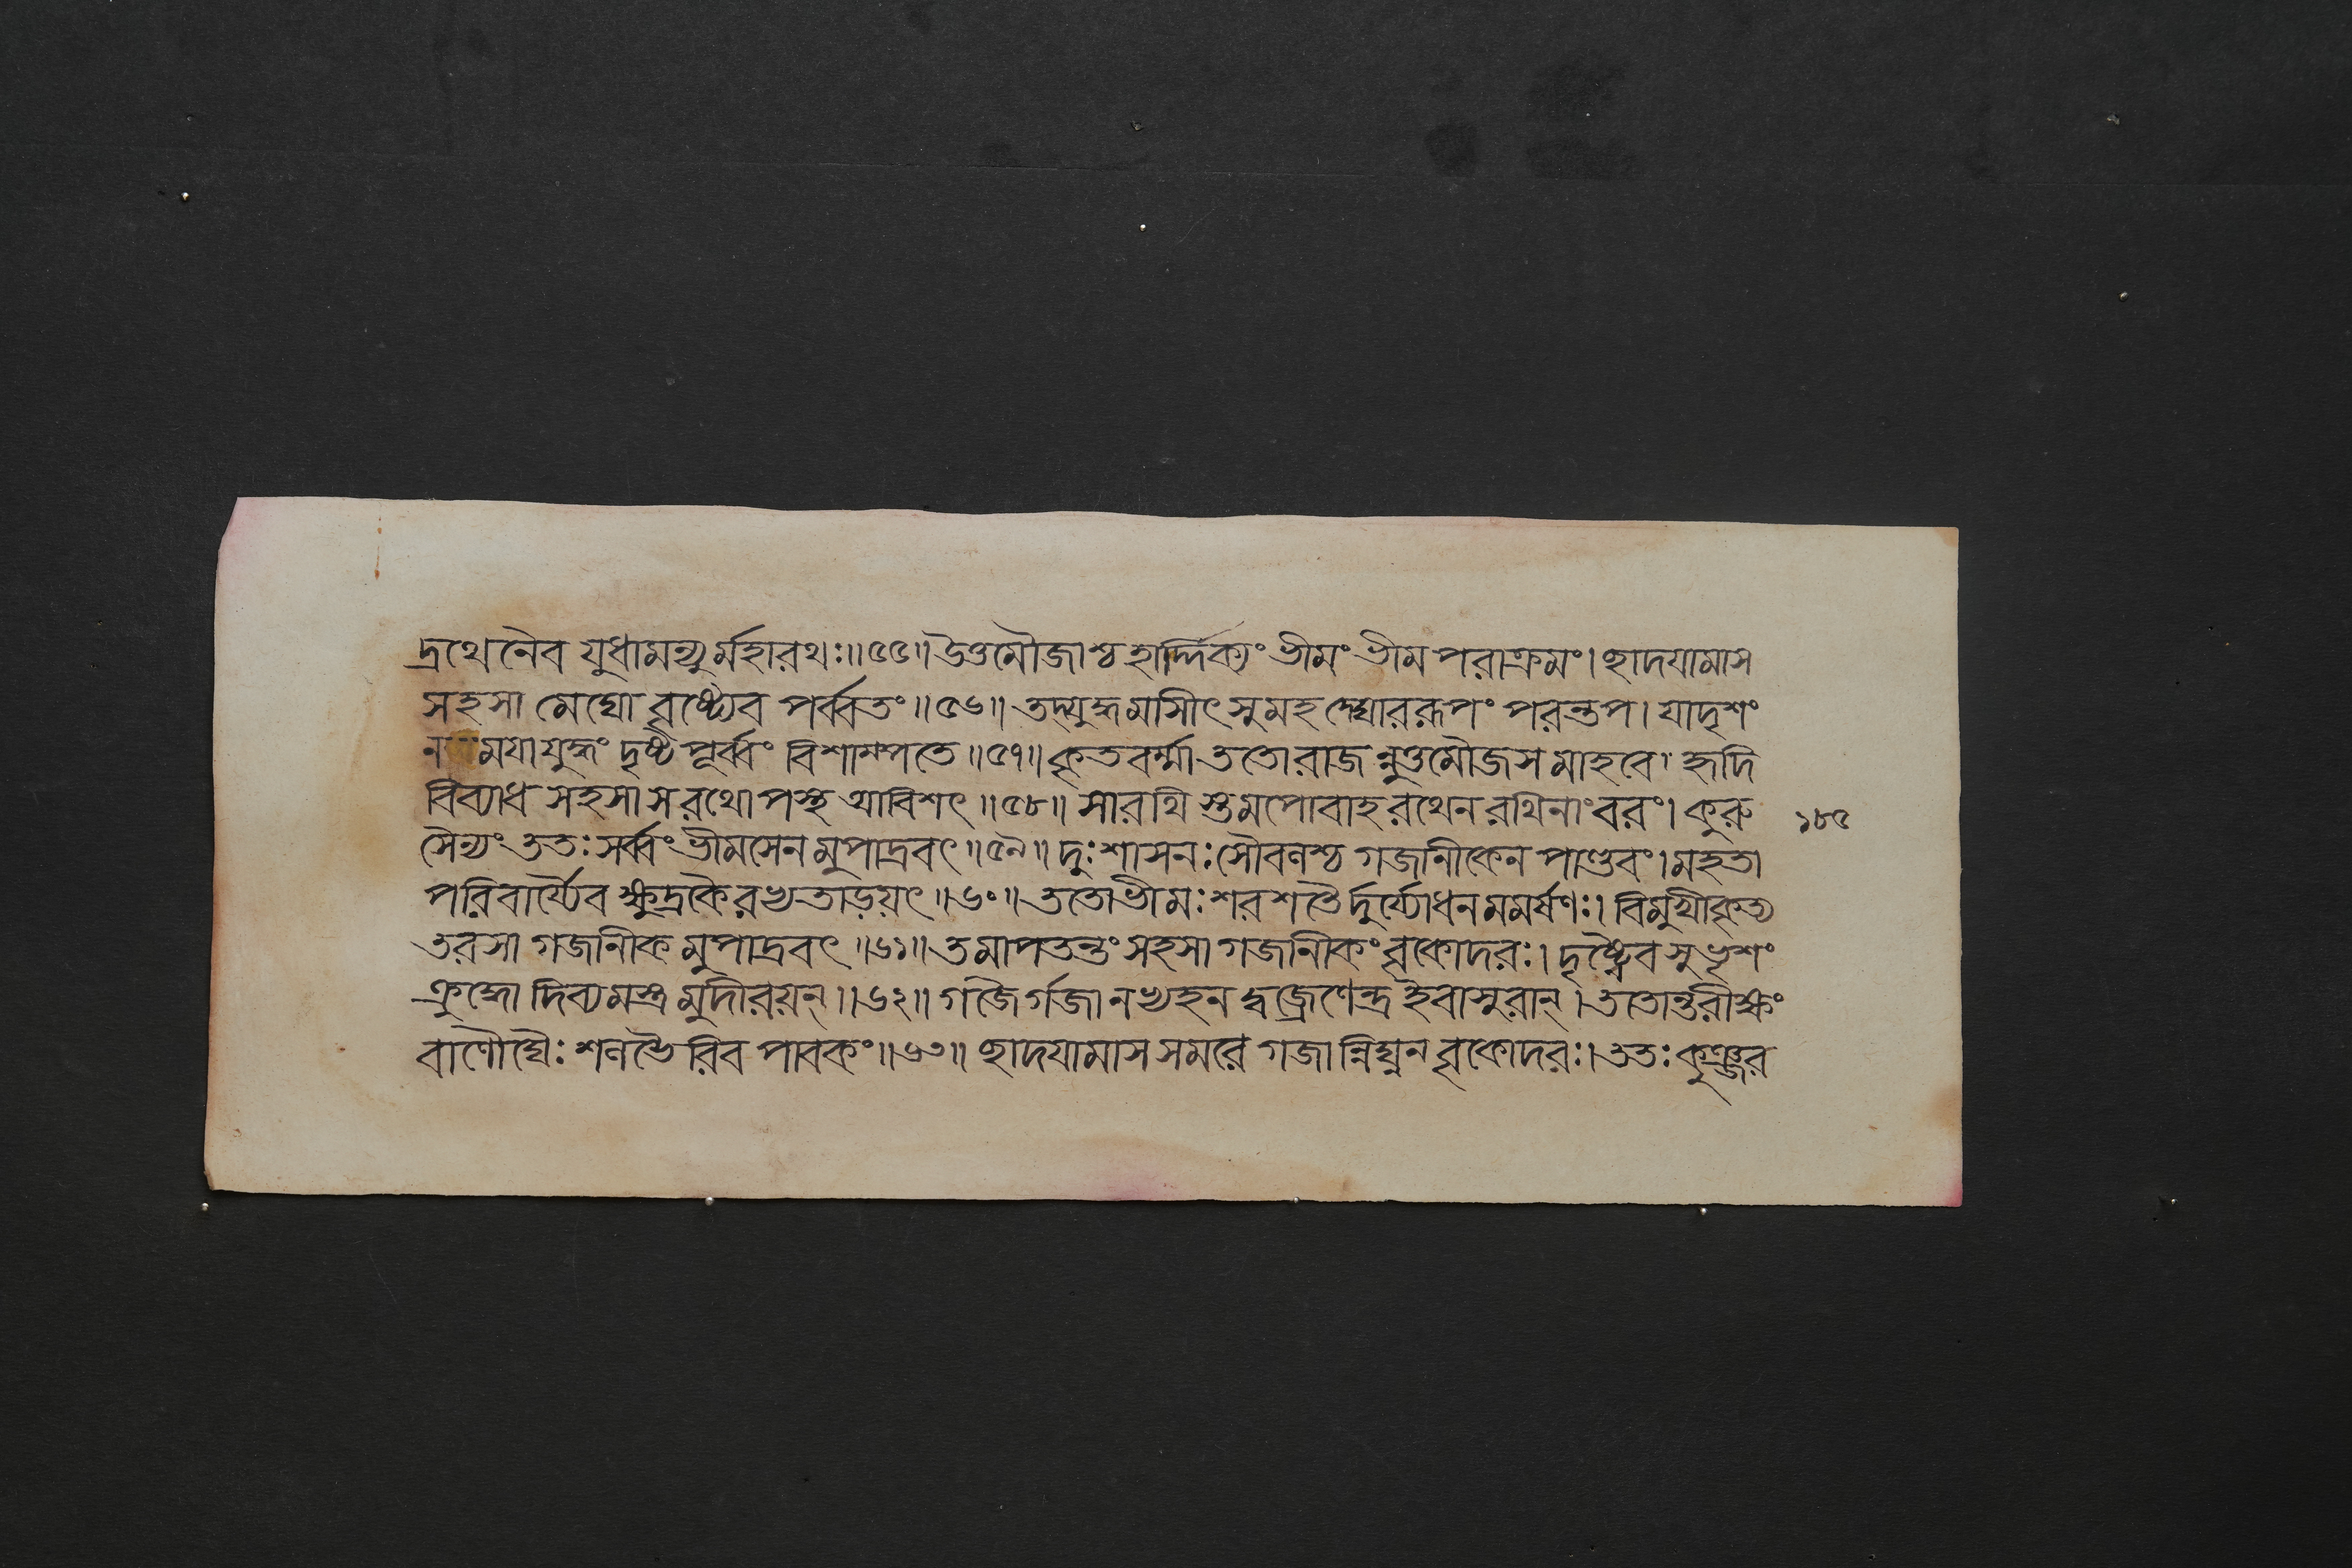 দ্রথেনৈব যুধামন্যুর্মহারথঃ॥৫৫॥ উত্তমৌজাশ্চ হার্দ্দিক্যং ভীমং ভীম পরাক্রমং। ছাদযামাস
সহসা মেঘো বৃষ্ট্যেব পর্ব্বতং॥৫৬॥ তদ্যুদ্ধমাসীৎ সুমহদ্ঘোররূপং পরন্তপ। যাদৃশং
ন ময়া যুদ্ধং দৃষ্ট পূর্ব্বং বিশাম্পতে॥৫৭॥ কৃতবর্ম্মা ততো রাজন্নুত্তমৌজসমাহবে। হৃদি
বিব্যাধ সহসা স রথোপস্থ আবিশৎ॥৫৮॥ সারথি স্তমপোবাহ রথেন রথিনাং বরং। কুরু
১৮৫
সৈন্যং ততঃ সর্ব্বং ভীমসেন মুপাদ্রবৎ॥৫৯॥ দুঃশাসনঃ সৌবলশ্চ গজানীকেন পাণ্ডবং। মহতা
পরিবার্য্যৈব ক্ষুদ্রকৈরভ্যতাড়য়ৎ॥৬০॥ ততো ভীমঃ শরশতৈর্দুর্য্যোধন মমর্ষণঃ। বিমুখীকৃত্য
তরসা গজানীক মুপাদ্রবৎ॥৬১॥ তমাপতন্তং সহসা গজানীকং বৃকোদরঃ। দৃষ্ট্বৈব সুভৃশং
ক্রুদ্ধো দিব্যমস্ত্র মুদীরয়ন্॥৬২॥ গজৈর্গজানভ্যহনদ্বজ্রেণেন্দ্র ইবাসুরান্। ততোর্ন্তরীক্ষং
বাণৌঘৈঃ শলভৈরিব পাবকং॥৬৩॥ ছাদযামাস সমরে গজান্নিঘ্নন বৃকোদরঃ। ততঃ কুঞ্জর